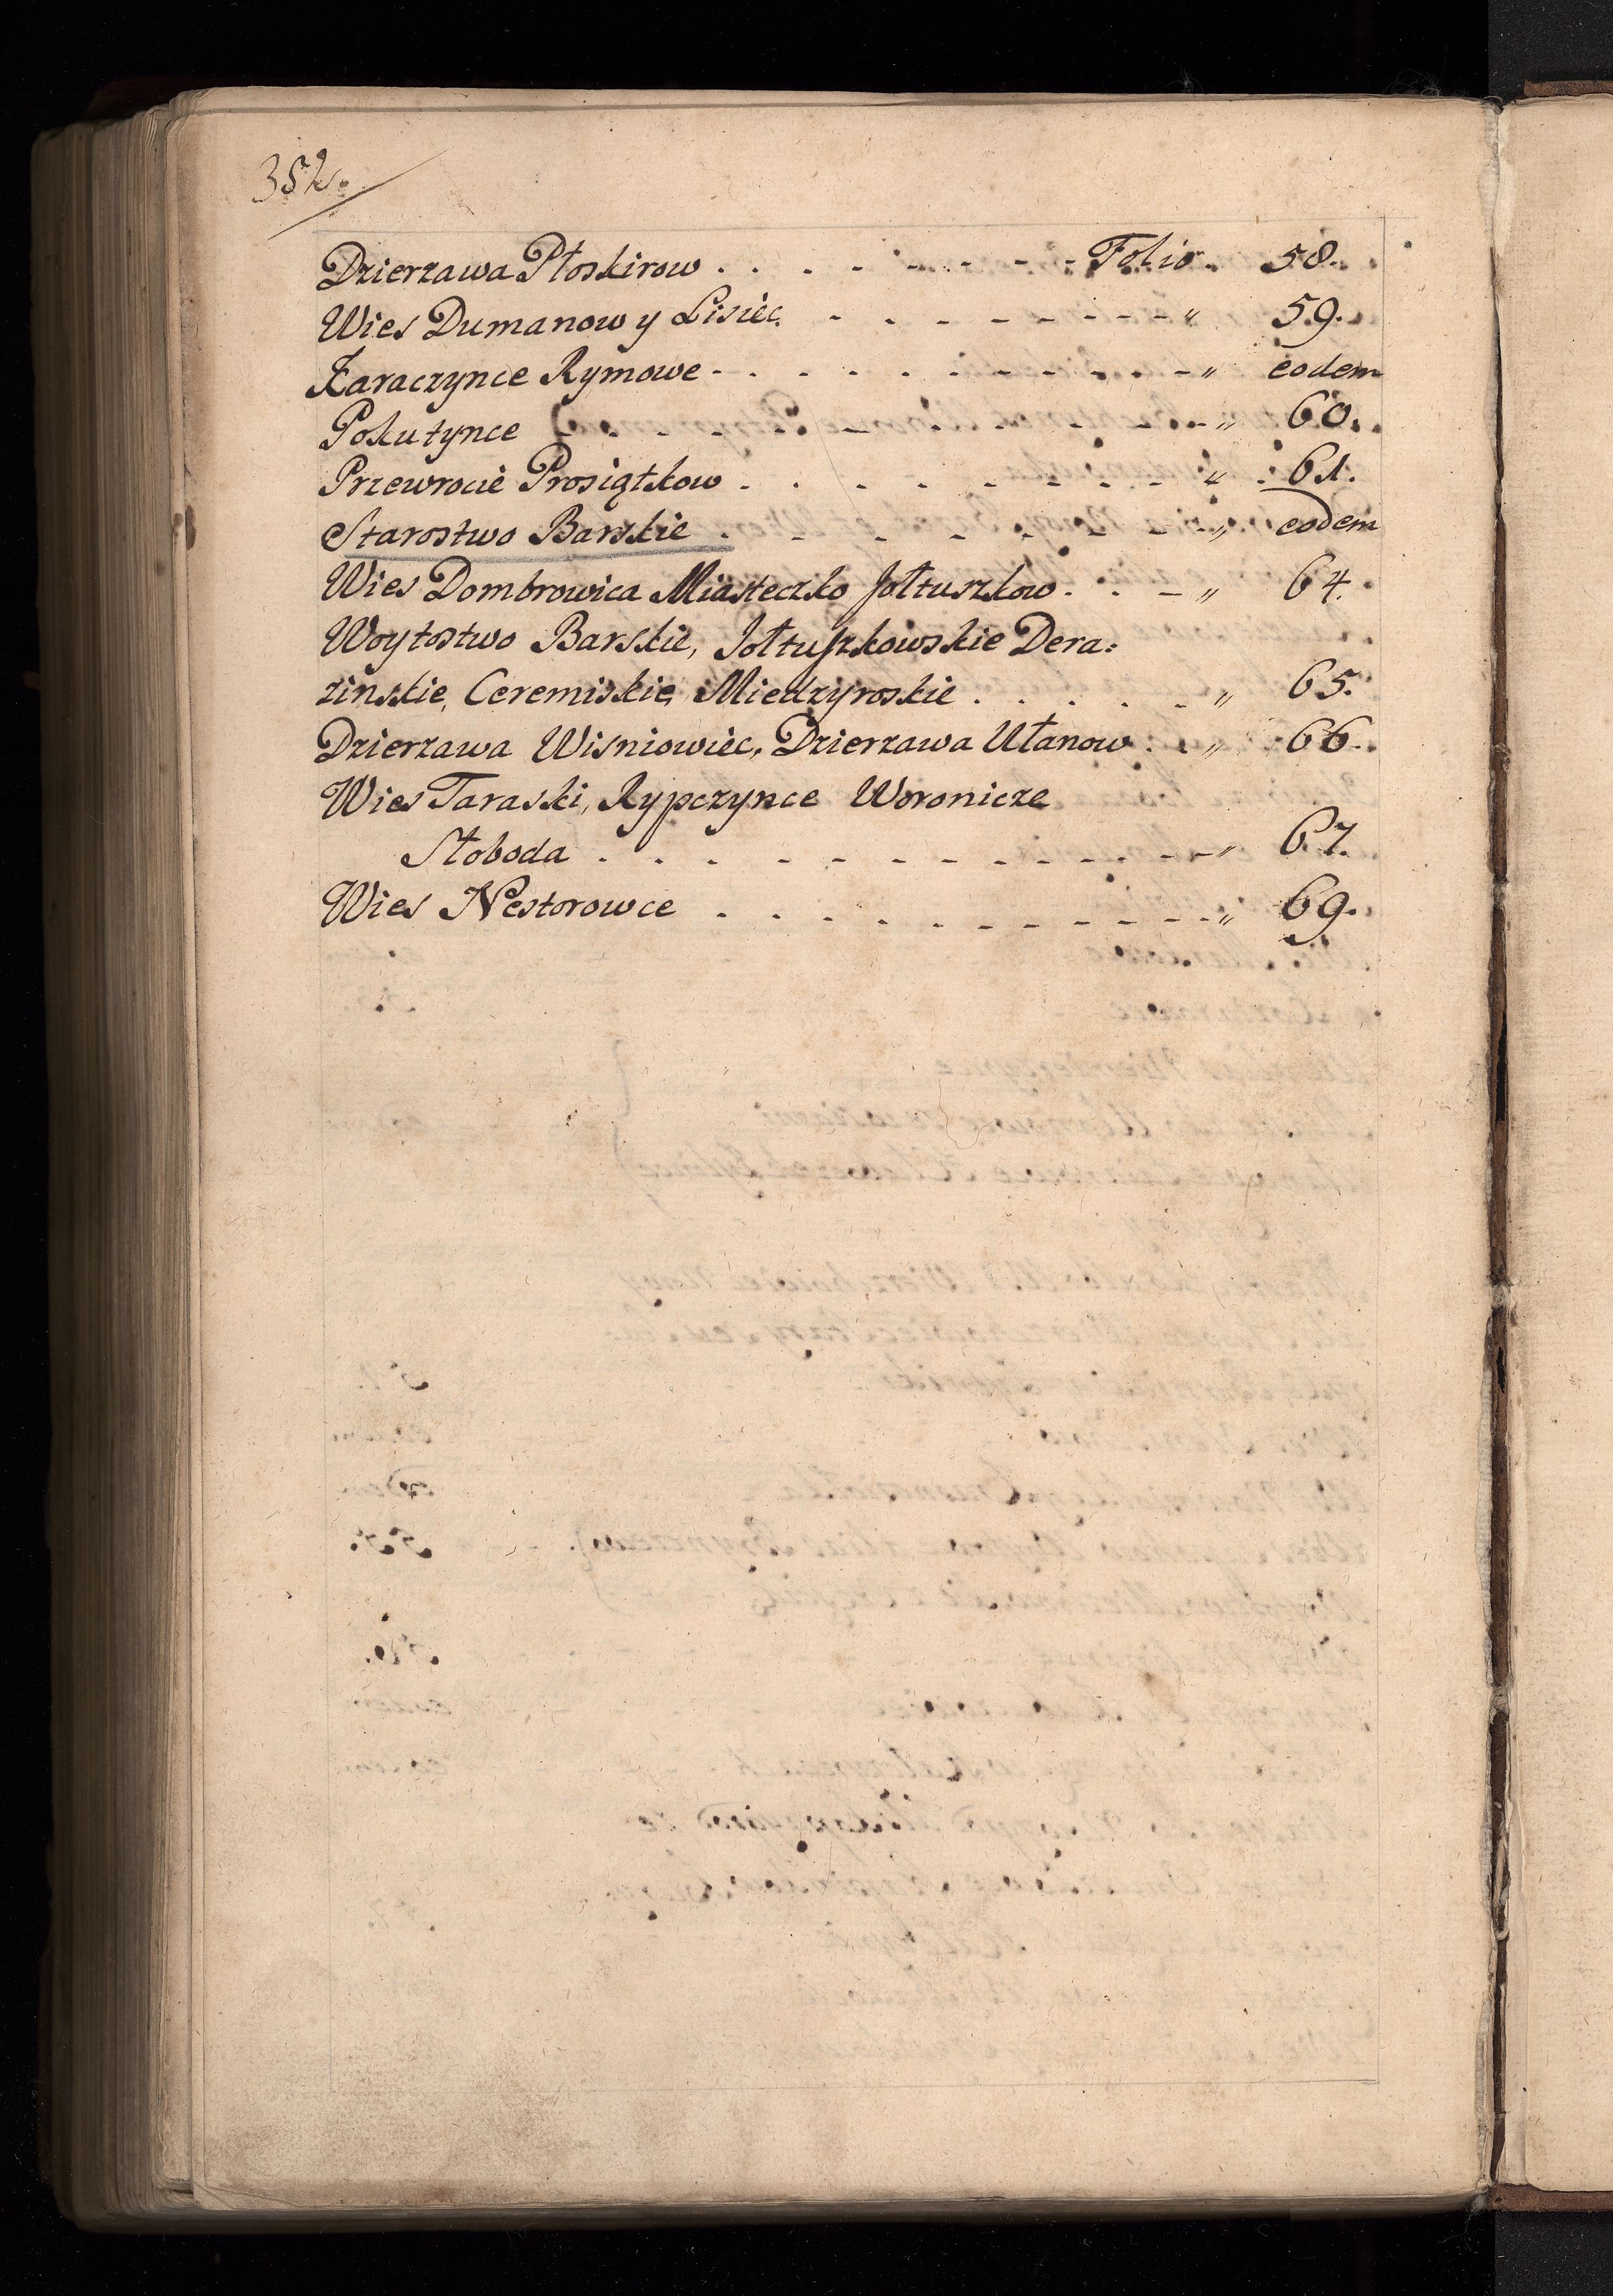 352.
Dzierzawa Płoskirow . . . - - - - - - Folio. 58.
Wies Dumanow y Lisiec. - - - - - - - - - „ 59.
Karaczynce Rymowe - . . . . . - - - - - „ eodem
Pokutynce - - - - - - - - - - „ 60.
Przewrocie Prosiątkow . . . - - - - - „ 61.
Starostwo Barskie . - - - - - - - „ eodem
Wies Dombrowica Miasteczko Jołtuszkow. . - „ 64.
Woytostwo Barskie, Jołtuszkowskie Dera=
zinskie, Ceremiskie, Miedzyroskie . . . . - „ 65.
Dzierzawa Wisniowiec, Dzierzawa Ułanow . . „ 66.
Wies Taraski, Rypczynce Woronicze
Słoboda . . . - - - - - - - - - - „ 67.
Wies Nestorowce . . . . - - - - - - - „ 69.